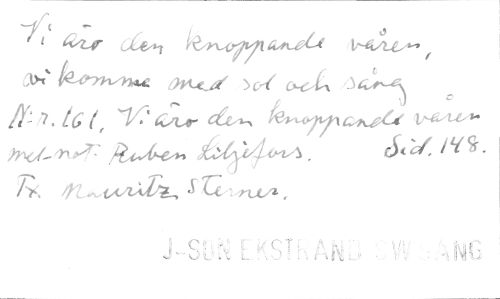 Vi äro den knoppande våren,
vi komma med sol och sång
N:r. 161, Vi äro den knoppande våren
mel-not. Ruben Liljefors. Sid. 148.
Tx. Mauritz Sterner.
J-SON EKSTRAND SW SANG